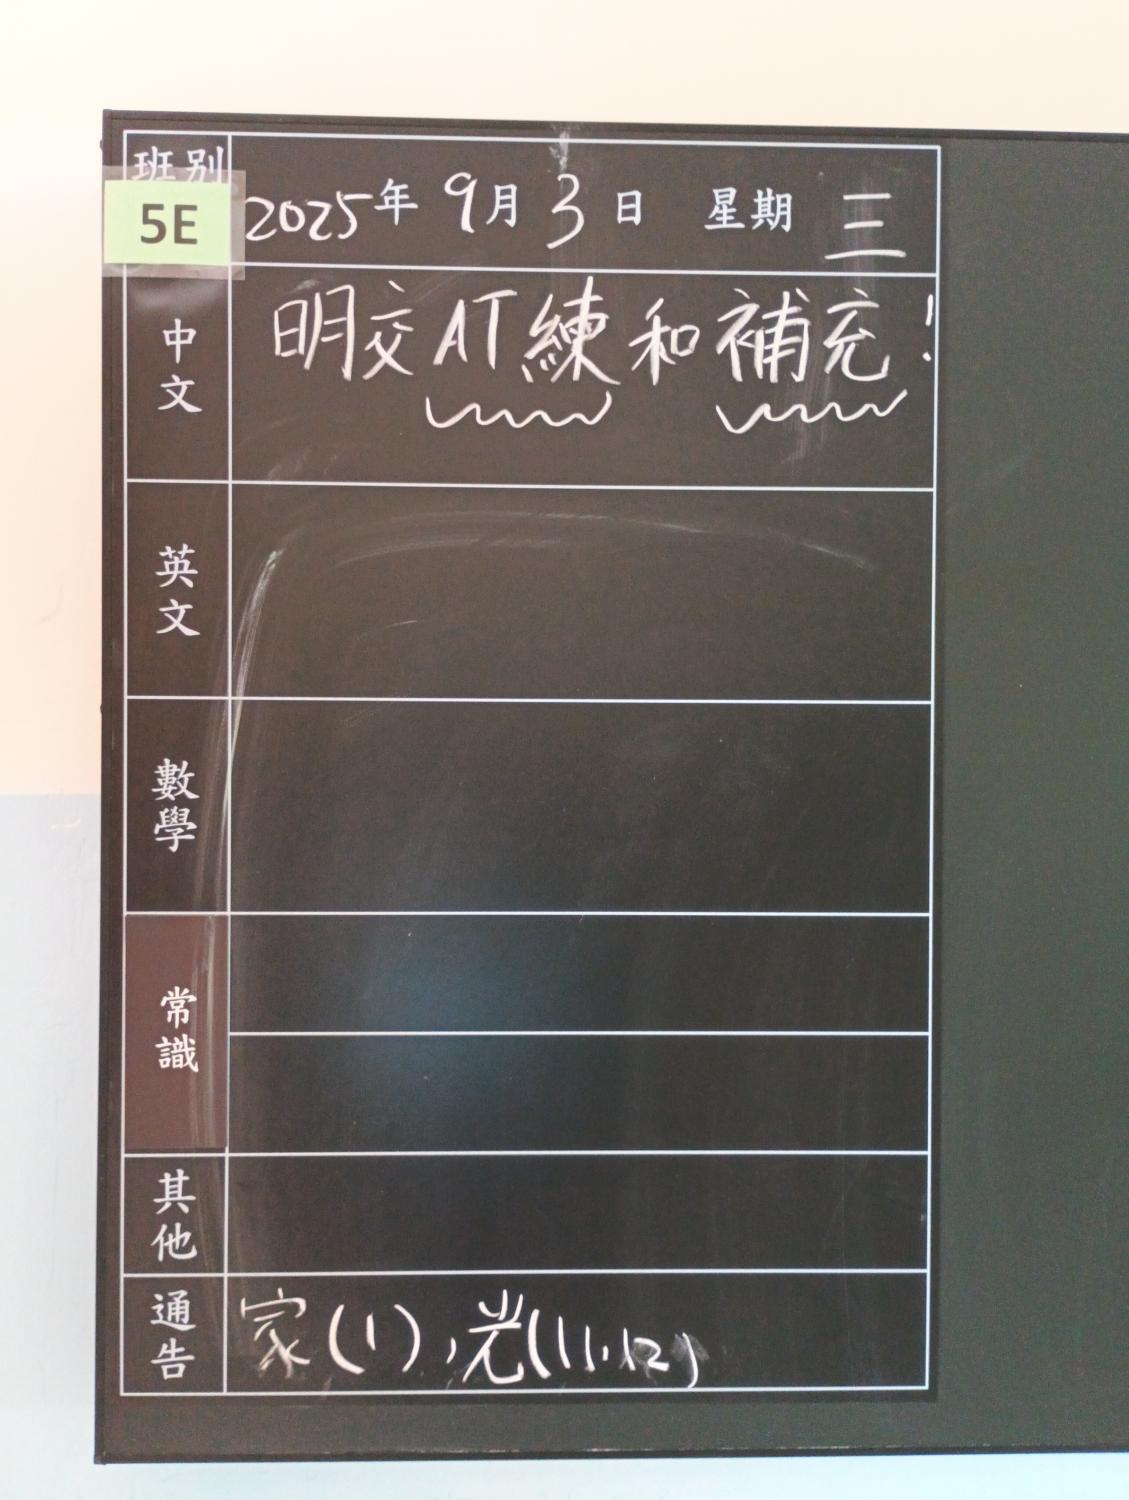 班別
5E
2025年 9月 3日 星期 三
中文
明交AT練和補充!
英文
數學
常識
其他
通告
家(1),光(11,12)